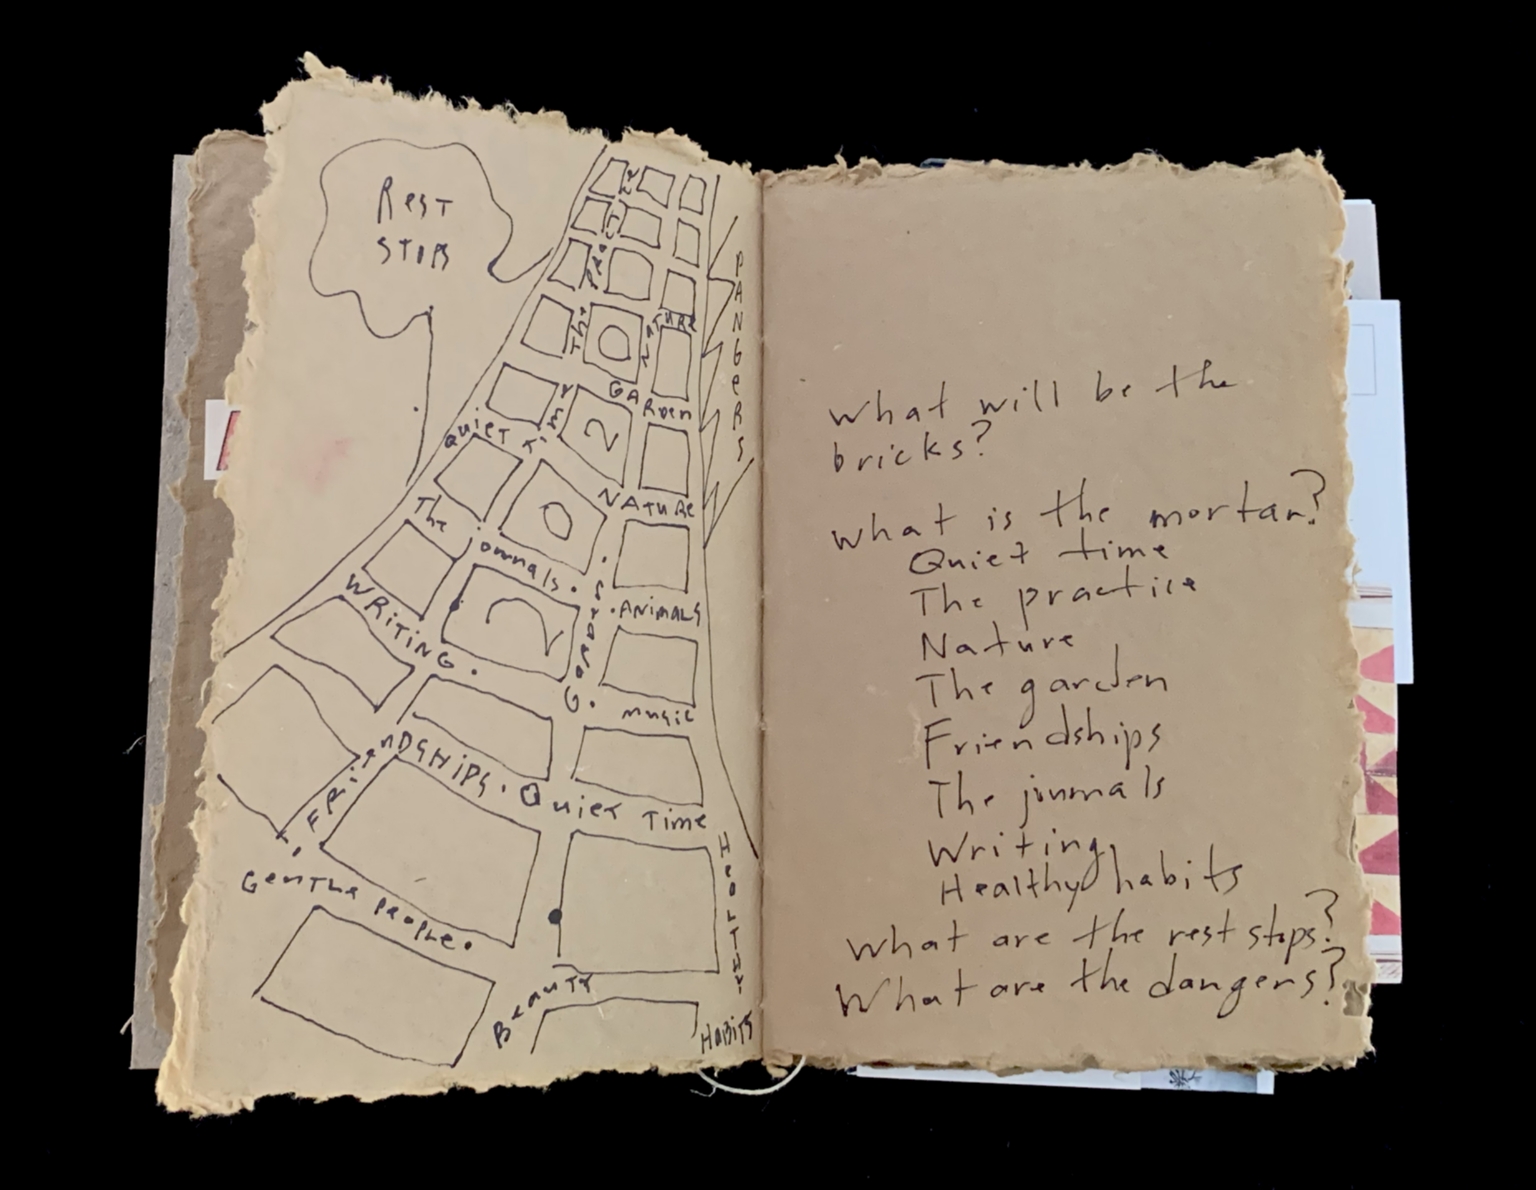 REST
STOPS
DANGERS
The PRACTICE
NATURE
0
GARDEN
QUIET TIME
2
NATURE
0
The Journals.
2
.ANIMALS
WRITING.
G.
MUSIC
FRIENDSHIPS.
QUIET TIME
GENTLE PEOPLE.
HEALTHY
HABITS
BEAUTY
What will be the
bricks?
What is the mortar?
Quiet time
The practice
Nature
The garden
Friendships
The journals
Writing
Healthy habits
What are the rest stops?
What are the dangers?